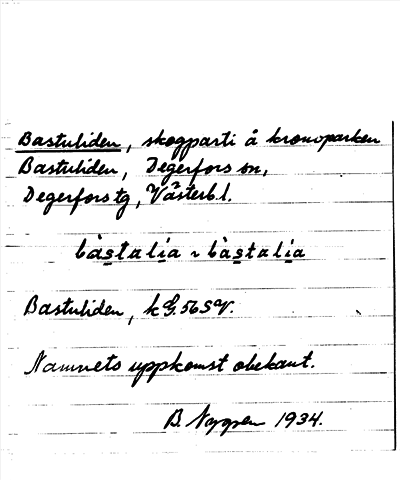 Bastuliden, skogparti å kronoparken
Bastuliden, Degerfors sn,
Degerfors tg, Västerb.l.
bàstalía ~ bàstalía
Bastuliden, k G. 56 SV.
Namnets uppkomst obekant.
B. Nygren 1934.